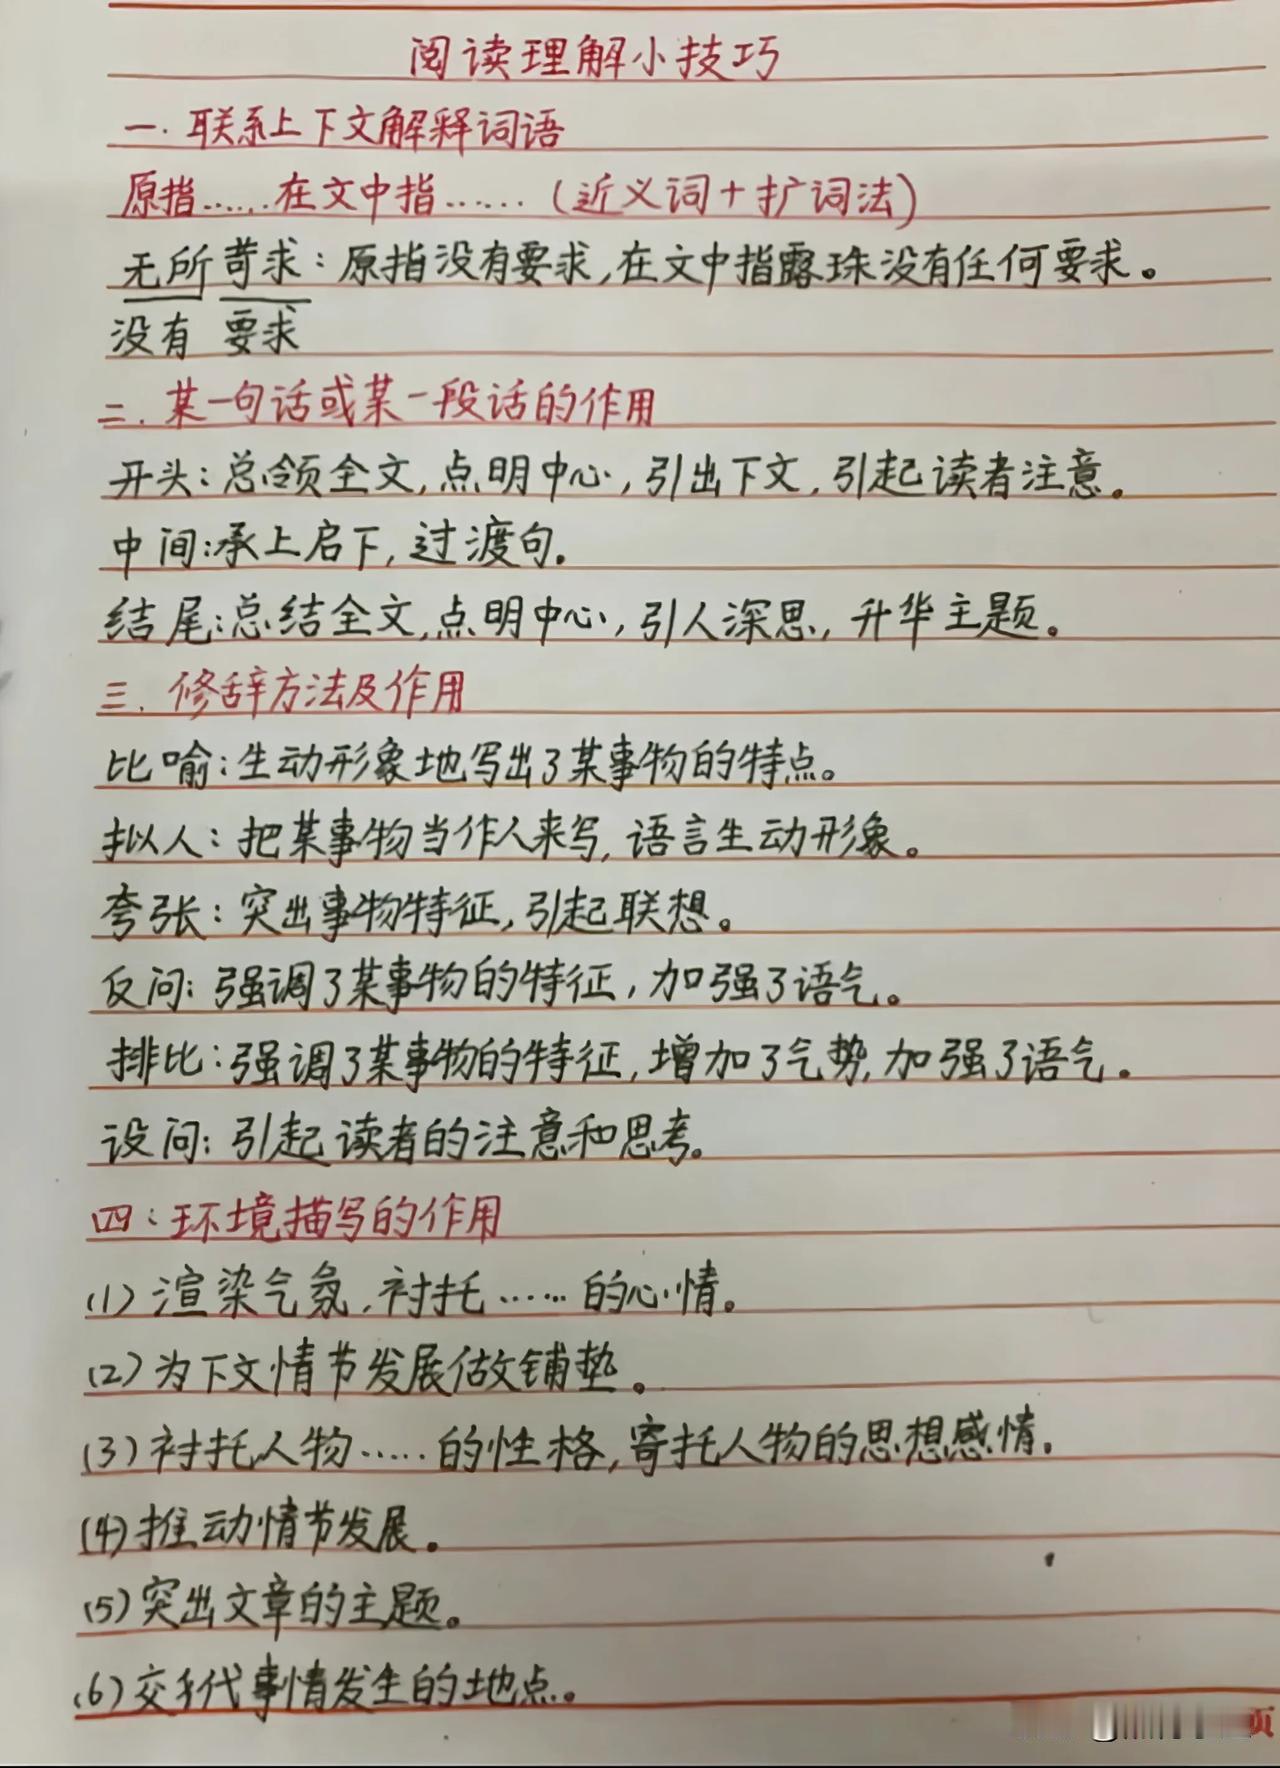 阅读理解小技巧
一.联系上下文解释词语
原指……在文中指……(近义词+扩词法)
无所苛求:原指没有要求,在文中指露珠没有任何要求。
没有 要求
二.某一句话或某一段话的作用
开头:总领全文,点明中心,引出下文,引起读者注意。
中间:承上启下,过渡句.
结尾:总结全文,点明中心,引人深思,升华主题。
三.修辞方法及作用
比喻:生动形象地写出了某事物的特点。
拟人:把某事物当作人来写,语言生动形象。
夸张:突出事物特征,引起联想。
反问:强调了某事物的特征,加强了语气。
排比:强调了某事物的特征,增加了气势,加强了语气.
设问:引起读者的注意和思考。
四:环境描写的作用
(1)渲染气氛,衬托……的心情。
(2)为下文情节发展做铺垫。
(3)衬托人物……的性格,寄托人物的思想感情.
(4)推动情节发展。
(5)突出文章的主题。
(6)交代事情发生的地点。
页